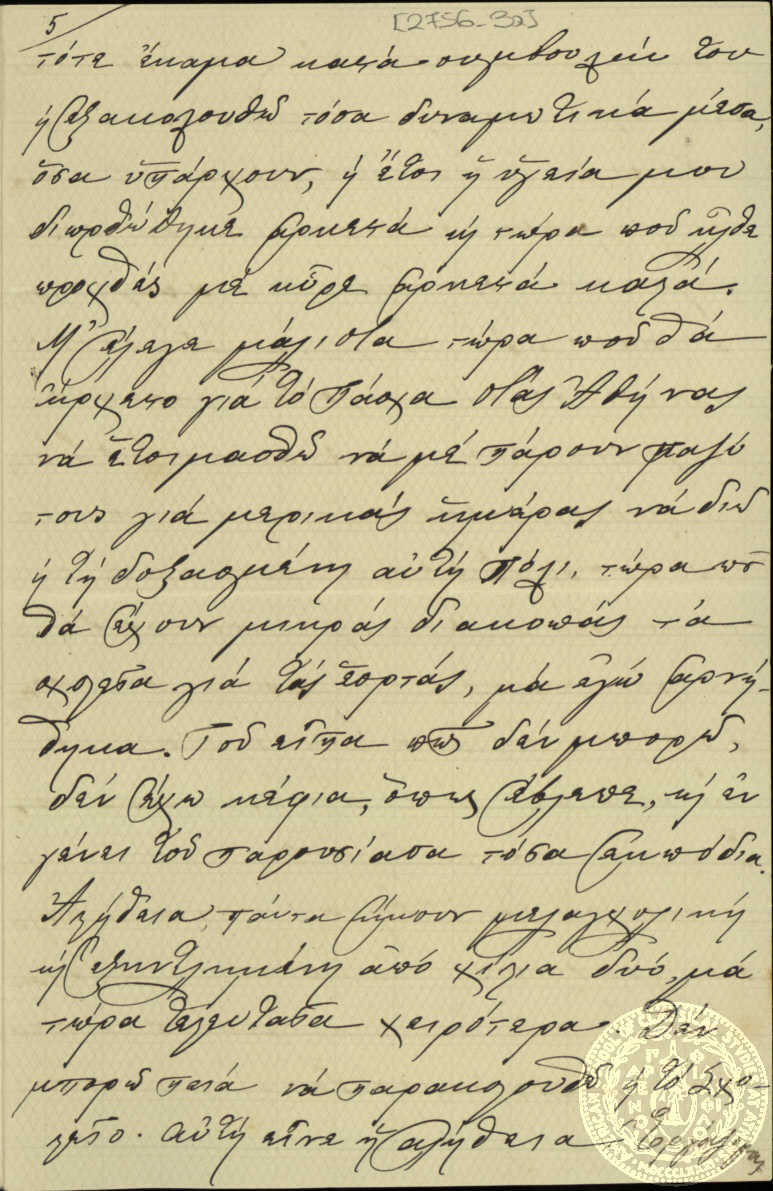 5
[2756-32]
τότε ἔκαμα κατὰ συμβουλήν του
κ' ἐξακολουθῶ τόσα δυναμωτικά μέσα,
ὅσα ὑπάρχουν, κ' ἔτσι ἡ ὑγεία μου
διωρθώθηκε ἀρκετά κι τώρα ποῦ ἦλθε
προχθές μὲ ηὗρε ἀρκετά καλά.
Μ' ἔλεγε μάλιστα τώρα ποῦ θά
ἤρχετο γιά τό Πάσχα στάς Ἀθήνας
νά ἑτοιμασθῶ νά μέ πάρουν μαζύ
τους γιά μερικάς ἡμέρας νά διῶ
κ' τή δοξασμένη αὐτή πόλι, τώρα π
θά ἔχουν μικράς διακοπάς τά
σχολεῖα γιά τάς ἑορτάς, μά ἐγώ ἀρνή-
θηκα. Τοῦ εἶπα πῶς δέν μπορῶ,
δέν ἔχω κέφια, ὅπως ἔβλεπε, κι ἐν
γένει τοῦ παρουσίασα τόσα ἐμπόδια.
Ἀλήθεια, πάντα ἤμουν μελαγχολική
κι ἐξηντλημένη ἀπό χίλια δυό, μά
τώρα τελευταῖα χειρότερα. Δέν
μπορῶ πειά νά παρακολουθῶ κ' τό Σχο-
λεῖο. Αὐτή εἶνε ἡ ἀλήθεια